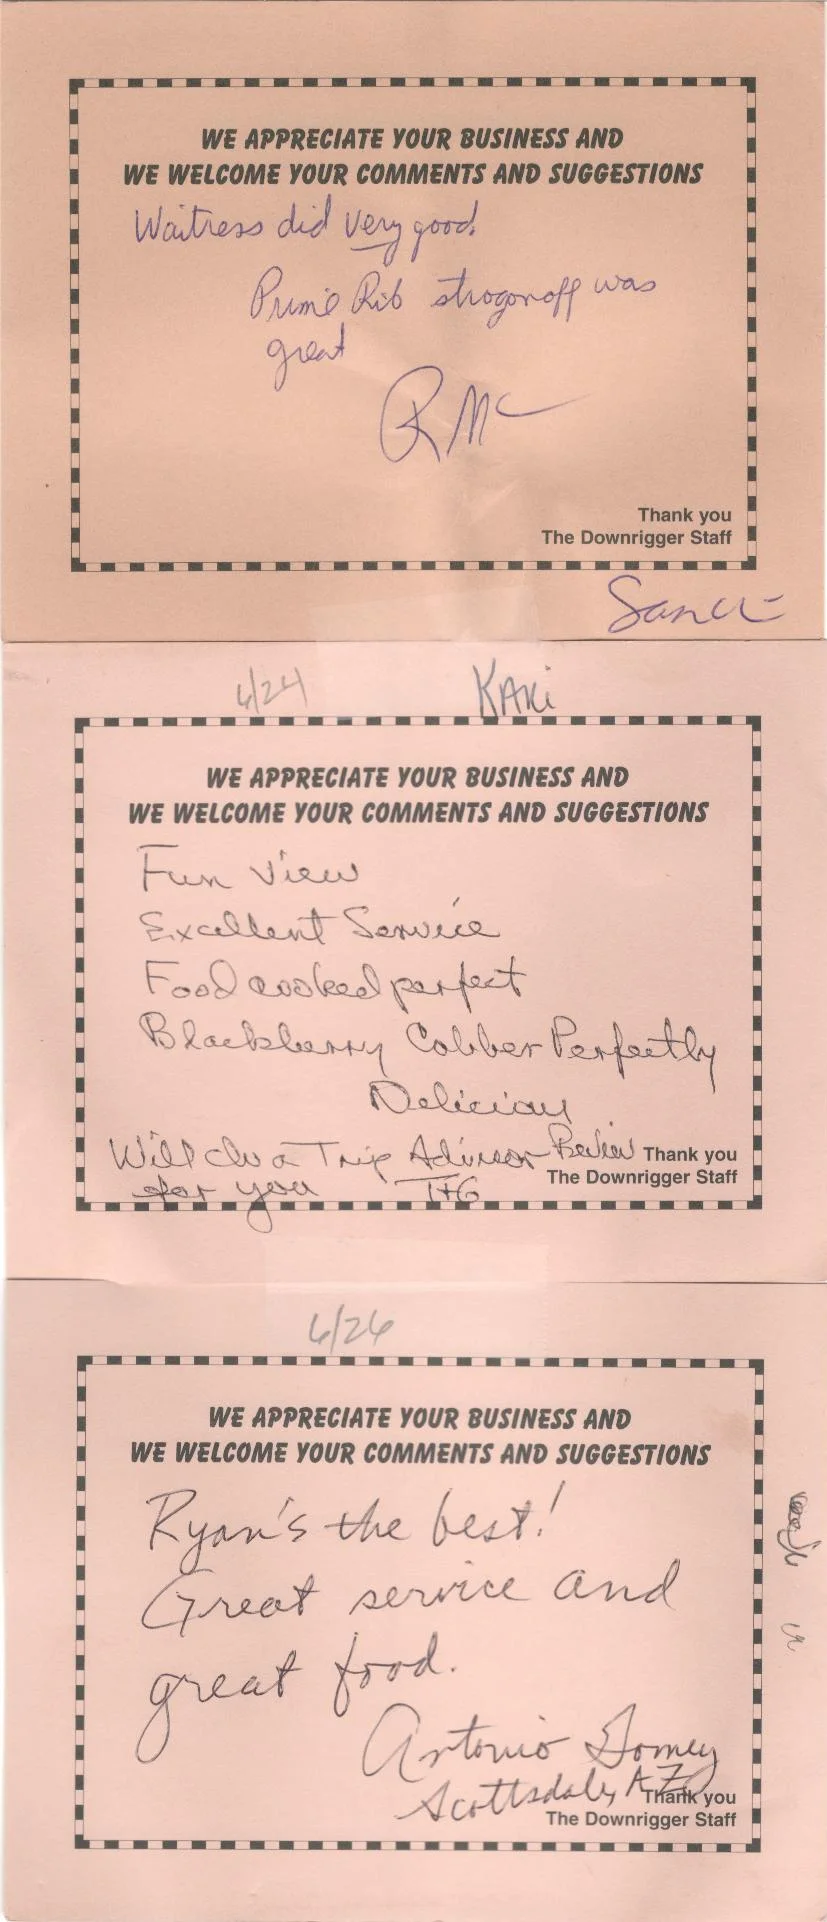 WE APPRECIATE YOUR BUSINESS AND
WE WELCOME YOUR COMMENTS AND SUGGESTIONS
Waitress did very good.
Prime Rib strogonoff was
great
RMc
Thank you
The Downrigger Staff
6/24 KAKi
WE APPRECIATE YOUR BUSINESS AND
WE WELCOME YOUR COMMENTS AND SUGGESTIONS
Fun View
Excellent Service
Food cooked perfect
Blackberry Cobber Perfectly
Delicious
Will do a Trip Advisor Review
for you T+G
Thank you
The Downrigger Staff
6/26
WE APPRECIATE YOUR BUSINESS AND
WE WELCOME YOUR COMMENTS AND SUGGESTIONS
Ryan's the best!
Great service and
great food.
Antonio
Scottsdale, AZ
Thank you
The Downrigger Staff